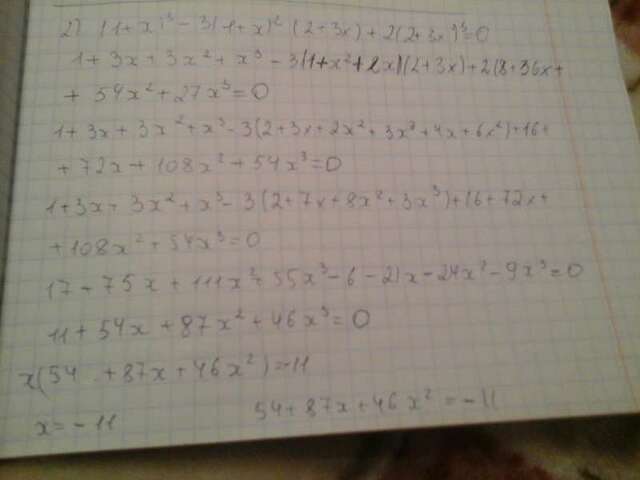 2) (1+x)³ - 3(1+x)² (2+3x) + 2(2+3x)³=0
1+3x+3x²+x³-3(1+x²+2x)(2+3x)+2(8+36x+
+ 54x²+27x³)=0
1+3x+3x²+x³-3(2+3x+2x²+3x³+4x+6x²)+16+
+72x+108x²+54x³=0
1+3x+3x²+x³-3(2+7x+8x²+3x³)+16+72x+
+108x²+54x³=0
17+75x+111x²+55x³-6-21x-24x²-9x³=0
11+54x+87x²+46x³=0
x(54+87x+46x²)=-11
x=-11 54+87x+46x²=-11